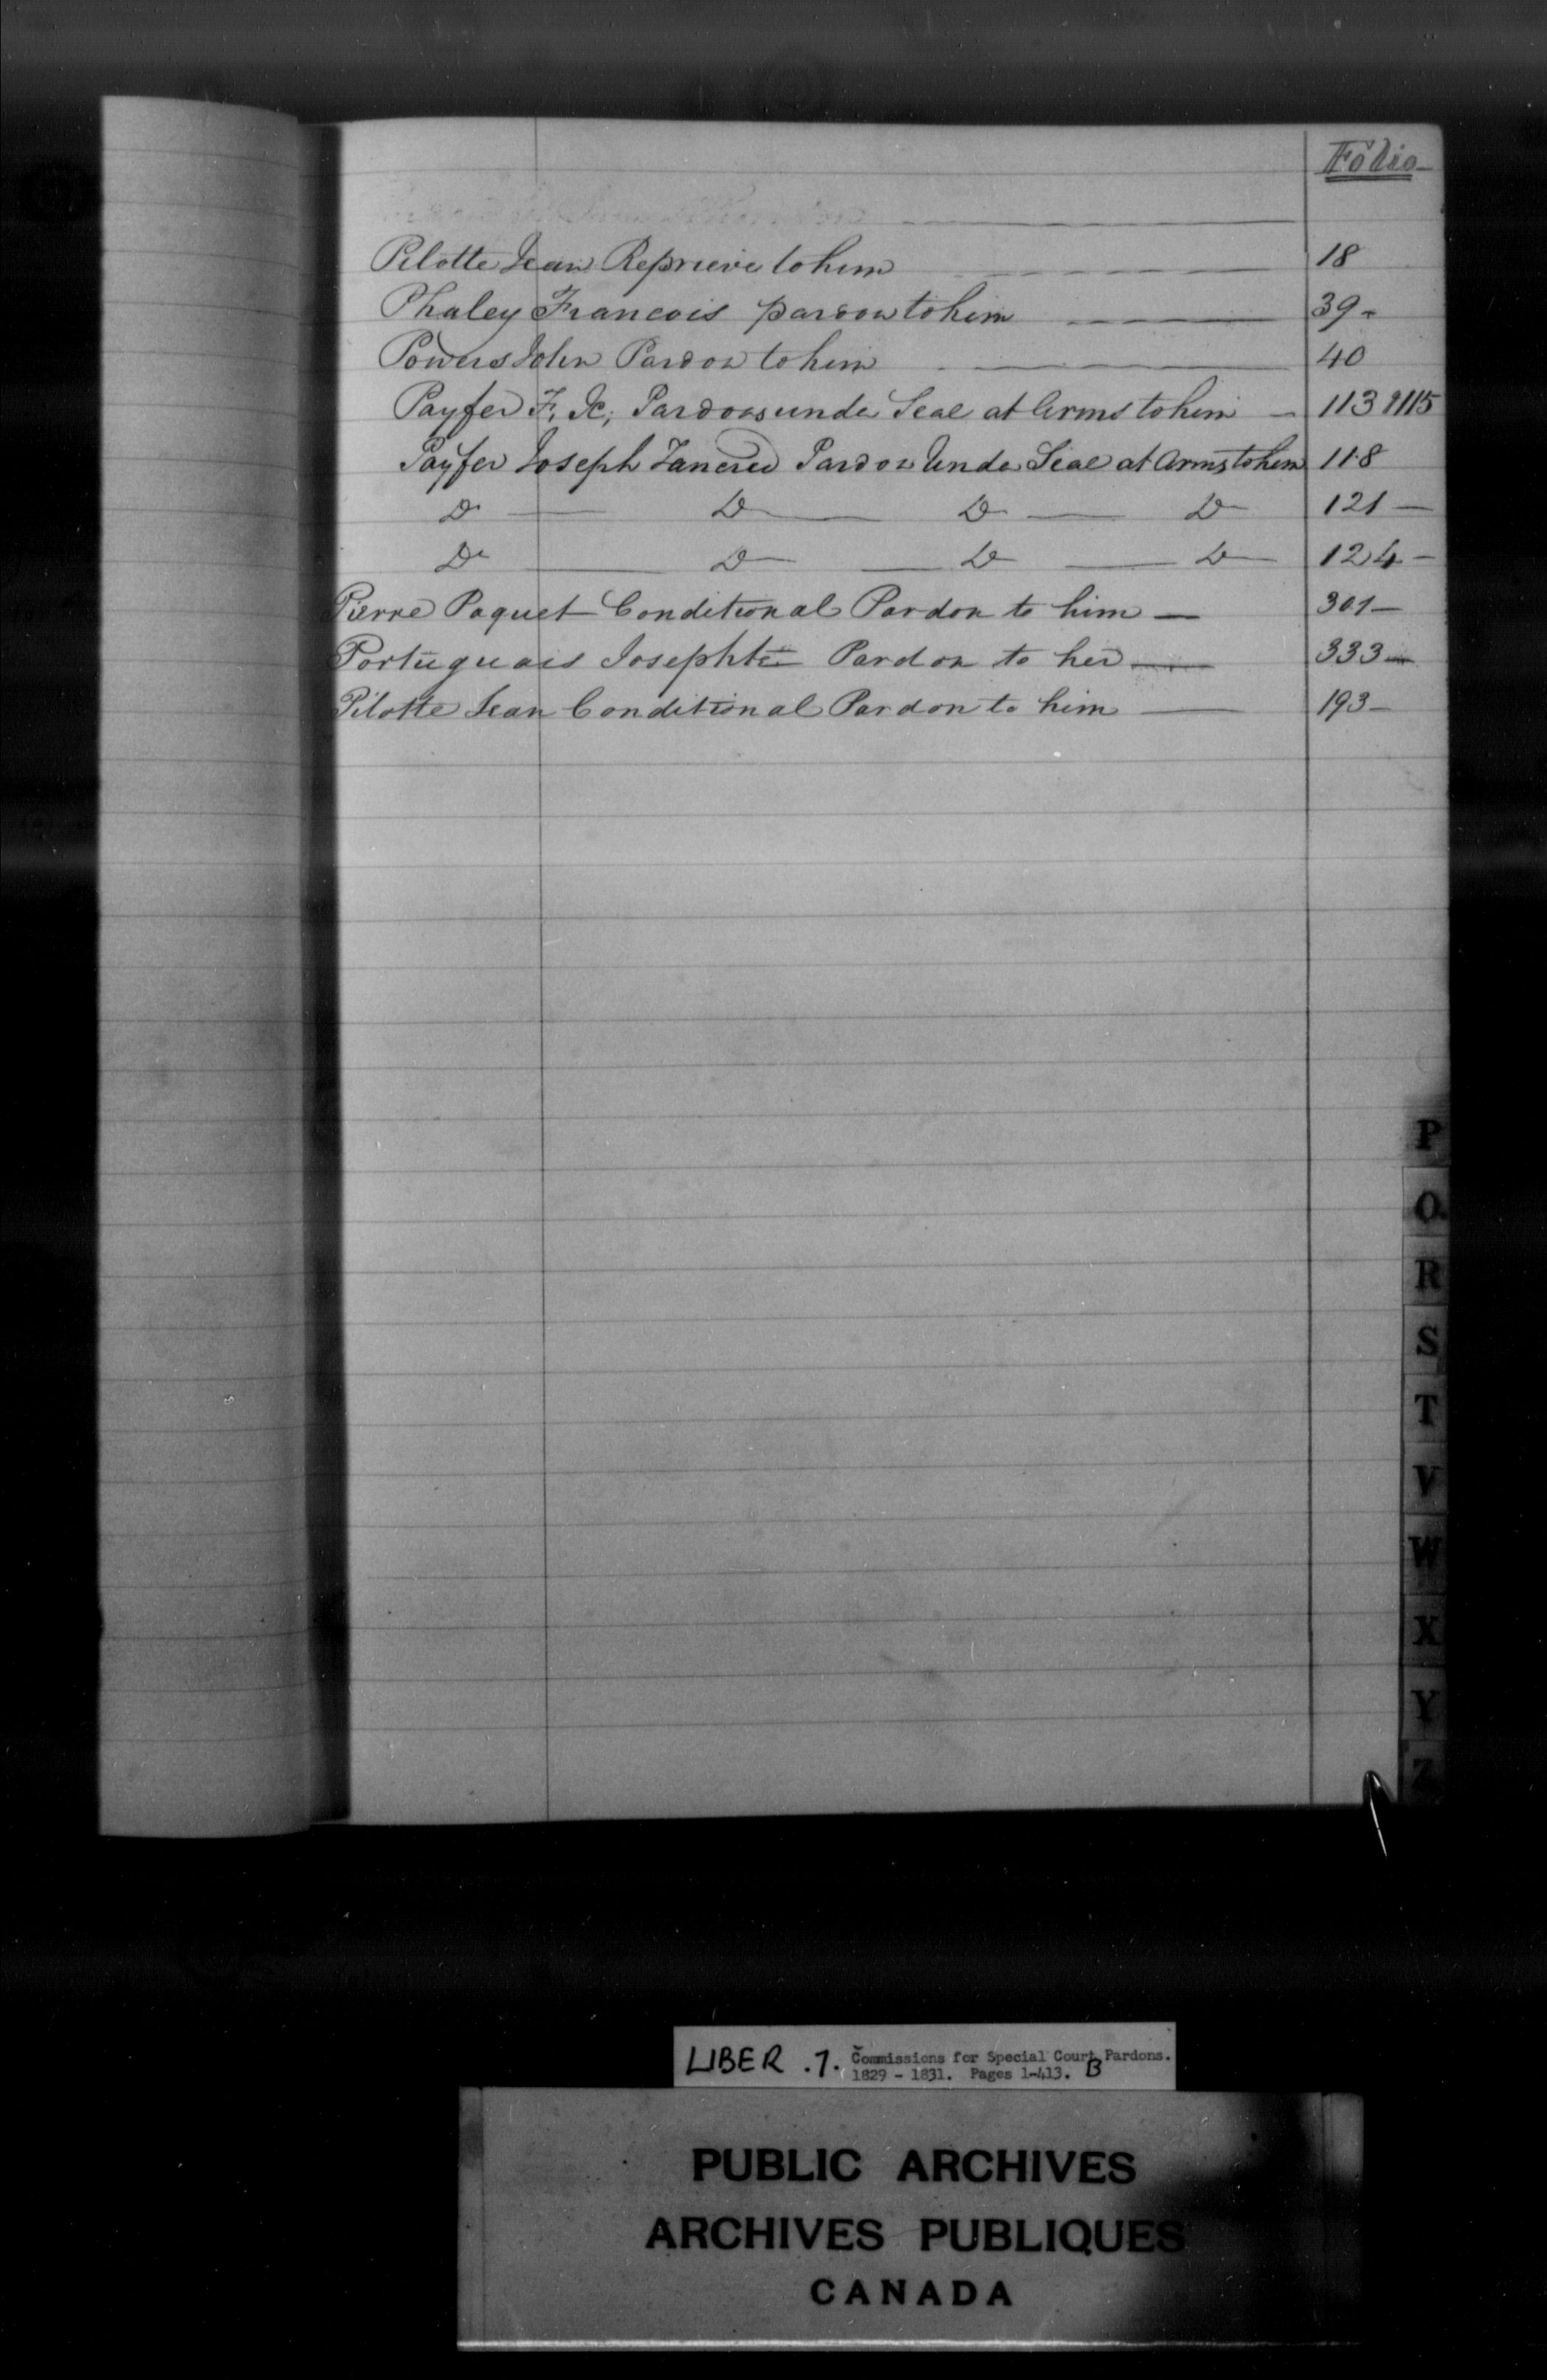 Folio
Pilotte Jean Reprieve to him 18
Phaley Francois pardon to him 39
Powers John Pardon to him 40
Payfer F, Pardons under Seal at Arms to him 113 & 115
Payfer Joseph Tancred Pardon Under Seal at Arms to him 118
Do Do Do Do 121
Do Do Do Do 124
Pierre Paquet Conditional Pardon to him 301
Portuguais Josephte Pardon to her 333
Pilotte Jean Conditional Pardon to him 193
P
Q
R
S
T
V
W
X
Y
Z
LIBER .7. Commissions for Special Court Pardons.
1829 - 1831. Pages 1-413. B
PUBLIC ARCHIVES
ARCHIVES PUBLIQUES
CANADA